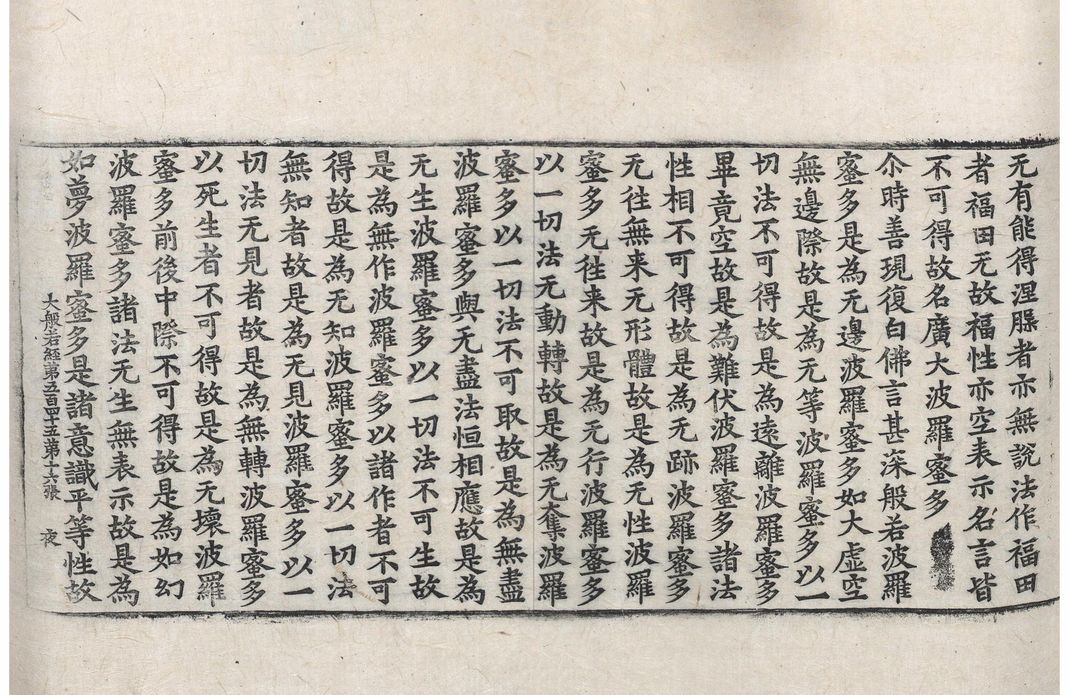 无有能得涅脲者亦無說法作福田
者福田无故福性亦空表示名言皆
不可得故名廣大波羅蜜多
尒時善現復白佛言甚深般若波羅
蜜多是為无邊波羅蜜多如大虛空
無邊際故是為无等波羅蜜多以一
切法不可得故是為遠離波羅蜜多
畢竟空故是為難伏波羅蜜多諸法
性相不可得故是為无跡波羅蜜多
无往無来无形體故是為无性波羅
蜜多无往来故是為无行波羅蜜多
以一切法无動轉故是為无奪波羅
蜜多以一切法不可取故是為無盡
波羅蜜多與无盡法恒相應故是為
无生波羅蜜多以一切法不可生故
是為無作波羅蜜多以諸作者不可
得故是為无知波羅蜜多以一切法
無知者故是為无見波羅蜜多以一
切法无見者故是為無轉波羅蜜多
以死生者不可得故是為无壞波羅
蜜多前後中際不可得故是為如幻
波羅蜜多諸法无生無表示故是為
如夢波羅蜜多是諸意識平等性故
大般若経第五百四十五第十六張 夜